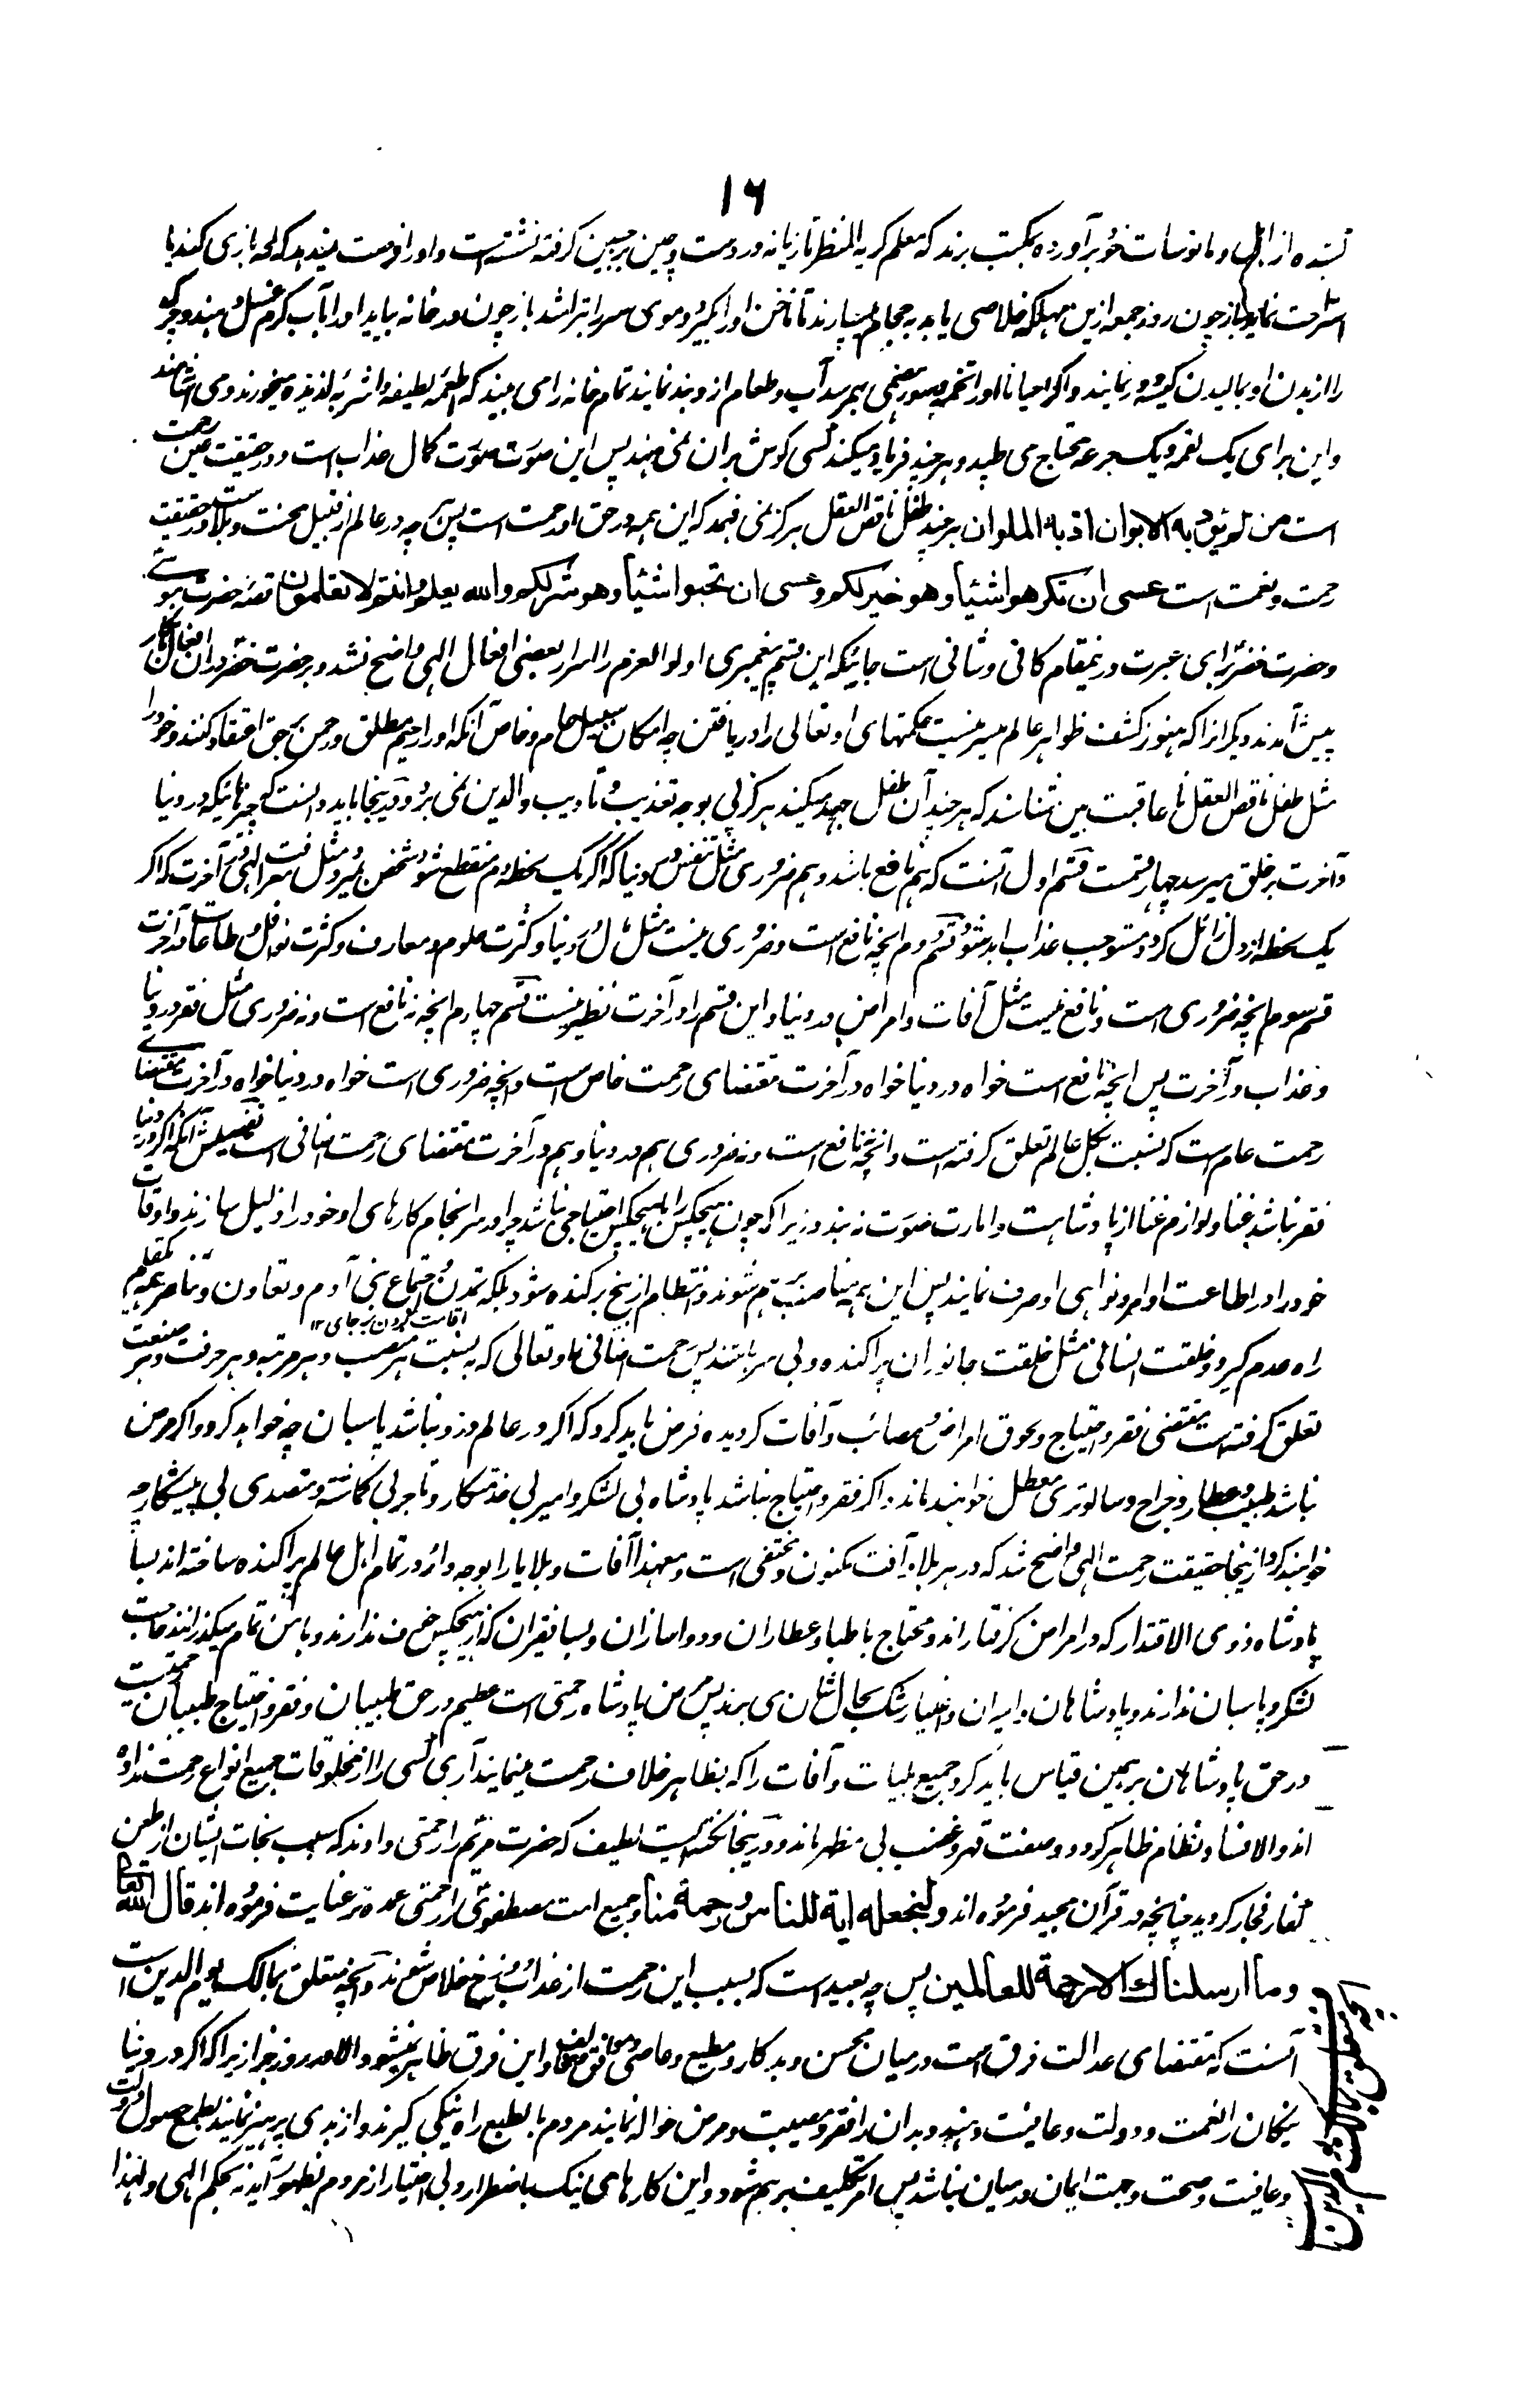 ١٦
شده از اهل و مانوسات خو برآورده بمکتب برند که معلم کریه المنظر تازیانه در دست و چین بر جبین گرفته نشسته است و او را فرصت نمیدهد که لمحه بازی کند یا
استراحت نماید باز چون روز جمعه ازین مهلکه خلاصی یابد به حجام بسپارند تا ناخن او را بگیرد و موی سر را بتراشد باز چون در خانه بیاید او را بآب گرم غسل دهند و چرک
را از بدن او بمالیدن کیسه دور نمایند و اگر احیانا او را تخمه و سوء هضمی بهم رسد آب و طعام ازو بند نمایند تمام خانه را می بیند که اطعمه لطیفه و اشربه لذیذه میخورند و می آشامند
و این برای یک لقمه و یک جرعه محتاج می طپد و هر چند فریاد میکند کسی گوش بران نمی نهد پس این صورت صورت کمال عذاب است و در حقیقت عین رحمت
است من لم یؤدبه الابوان ادبه الملوان هر چند طفل ناقص العقل هرگز نمی فهمد که این همه در حق او رحمت است پس هر چه در عالم از قبیل محنت و بلاست در حقیقت
رحمت و نعمت است عسی ان تکرهوا شیئا وهو خیر لکم وعسی ان تحبوا شیئا وهو شر لکم والله یعلم وانتم لا تعلمون قصه حضرت موسی
و حضرت خضر برای عبرت درینمقام کافی و شافی است جائیکه این قسم پیغمبری اولوالعزم را اسرار بعضی افعال الهی واضح نشد و بر حضرت خضر دران افعال بانکار
پیش آمدند دیگر انرا که هنوز کشف ظواهر عالم میسر نیست حکمتهای او تعالی را دریافتن چه امکان سبیل عام و خاص آنکه او را رحیم مطلق و رحمن بحق اعتقاد کنند و خود را
مثل طفل ناقص العقل نا عاقبت بین شناسند که هر چند آن طفل جهد میکند هرگز پی بوجه تعذیب و تادیب والدین نمی برد و درینجا باید دانست که چیزهائیکه در دنیا
و آخرت بر خلق میرسد چهار قسمت قسم اول آنست که هم نافع باشد و هم ضروری مثل تنفس در دنیا که اگر یک لحظه دم منقطع شود شخص بمیرد و مثل معرفت الهی در آخرت که اگر
یک لحظه از دل زائل گردد مستوجب عذاب ابد شود قسم دوم انچه نافع است و ضروری نیست مثل مال در دنیا و کثرت علوم و معارف و کثرت نوافل و طاعات در آخرت
قسم سوم انچه ضروری است و نافع نیست مثل آفات و امراض در دنیا و این قسم را در آخرت نظیر نیست قسم چهارم انچه نه نافع است و نه ضروری مثل فقر در دنیا
و عذاب در آخرت پس انچه نافع است خواه در دنیا خواه در آخرت مقتضای رحمت خاص است و انچه ضروری است خواه در دنیا خواه در آخرت مقتضای
رحمت عام است که نسبت بکل عالم تعلق گرفته است و انچه نافع است و نه ضروری هم در دنیا و هم در آخرت مقتضای رحمت اضافی است تفصیلش آنکه اگر در دنیا
فقر نباشد غنا و لوازم غنا از پادشاهت و امارت صورت نه بندد زیرا که چون هیچکس را بهیچکس احتیاجی نباشد چرا در سرانجام کارهای او خود را ذلیل سازند و اوقات
خود را در اطاعت اوامر و نواهی او صرف نمایند پس این همه مناصب برهم شوند و انتظام از بیخ برکنده شود بلکه تمدن و اجتماع بنی آدم و تعاون و تناصر همه بکقلم
اقامت کردن بر جای ١٢
راه عدم گیرد و خلقت انسانی مثل خلقت جانوران پراکنده و بی سر باشند پس رحمت اضافی او تعالی که به نسبت هر منصب و هر مرتبه و هر حرفت و هر صنعت
تعلق گرفته است مقتضی فقر و احتیاج و لحوق امراض و مصائب و آفات گردیده فرض باید کرد که اگر در عالم دزد نباشد پاسبان چه خواهد کرد و اگر مرض
نباشد طبیب و عطار و جراح و سالوتری معطل خواهند ماند و اگر فقر و احتیاج نباشد پادشاه بی لشکر و امیر بی خدمتگار و تاجر بی گماشته و متصدی بی پیشکار چه
خواهند کرد ازینجا حقیقت رحمت الهی واضح شد که در هر بلا و آفت مکنون و مختفی است و معهذا آفات و بلایا را بوجه وائر در تمام اهل عالم پراکنده ساخته اند بسا
پادشاه ذوی الاقتدار که در امراض گرفتار اند و محتاج باطبا و عطاران و دواسازان و بسا فقیران که از هیچکس خوف ندارند و بامن تمام میگذرانند حاجت
لشکر و پاسبان ندارند و پادشاهان و امیران و اغنیا رشک بحال شان می برند پس مرض پادشاه رحمتی است عظیم در حق طبیبان و فقر و احتیاج طبیبان رحمتیست
در حق پادشاهان برهمین قیاس باید کرد جمیع بلیات و آفات را که بظاهر خلاف رحمت مینمایند آری کسی را از مخلوقات جمیع انواع رحمت نداده
اند والا فساد نظام ظاهر گردد و صفت قهر و غضب بی مظهر ماند و درینجا نکته ایست لطیف که حضرت مریم را رحمتی دادند که سبب نجات ایشان از طعن
کفار فجار گردید چنانچه در قرآن مجید فرموده اند ولنجعله ایة للناس ورحمة منا و جمیع امت مصطفوی را رحمتی عمده تر عنایت فرموده اند قال الله تعالی
وما ارسلناك الا رحمة للعالمین پس چه بعید است که بسبب این رحمت از عذاب دوزخ خلاص شوند و انچه متعلق بمالک یوم الدین است
آنست که مقتضای عدالت فرق است درمیان محسن و بدکار و مطیع و عاصی و موافق و مخالف و این فرق ظاهر نمیشود الا در روز جزا زیرا که اگر در دنیا
نیکان را نعمت و دولت و عافیت دهند و بدان را فقر و مصیبت و مرض حواله نمایند مردم بالطبع راه نیکی گیرند و از بدی پرهیز نمایند بطمع حصول دولت
و عافیت و صحت و جهت ایمان درمیان نباشد پس امر تکلیف برهم شود و این کارهای نیک باضطرار و بی اختیار از مردم بظهور آیند نه بحکم الهی و لهذا